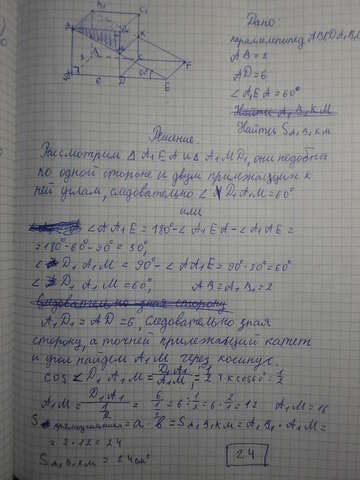 Дано:
параллепипед ABCDA₁B₁
AB=2
AD=6
∠A₁EA=60°
Найти A₁B₁KM
Найти S A₁B₁KM
Решение
Рассмотрим Δ A₁EA и Δ A₁MD₁, они подобны
по одной стороне и двум прилежащих к
ней углам, следовательно ∠ D₁A₁M=60°
или
∠AA₁E=180°-∠A₁EA-∠A₁AE=
=180°-60°-90°=30°,
∠D₁A₁M=90°-∠AA₁E=90°-30°=60°
∠D₁A₁M=60°, AB=A₁B₁=2
следовательно зная сторону
A₁D₁=AD=6, следовательно зная
сторону, а точней прилежащий катет
и угол найдём A₁M через косинус.
cos∠D₁A₁M=D₁A₁/A₁M=1/2 т.к cos60°=1/2
A₁M=D₁A₁/(1/2)=6/(1/2)=6:1/2=6·2/1=12
S прямоугольника=a·b=S A₁B₁KM=A₁B₁·A₁M=
=2·12=24
S A₁B₁KM=24см²
24
A
D
E
F
K
6